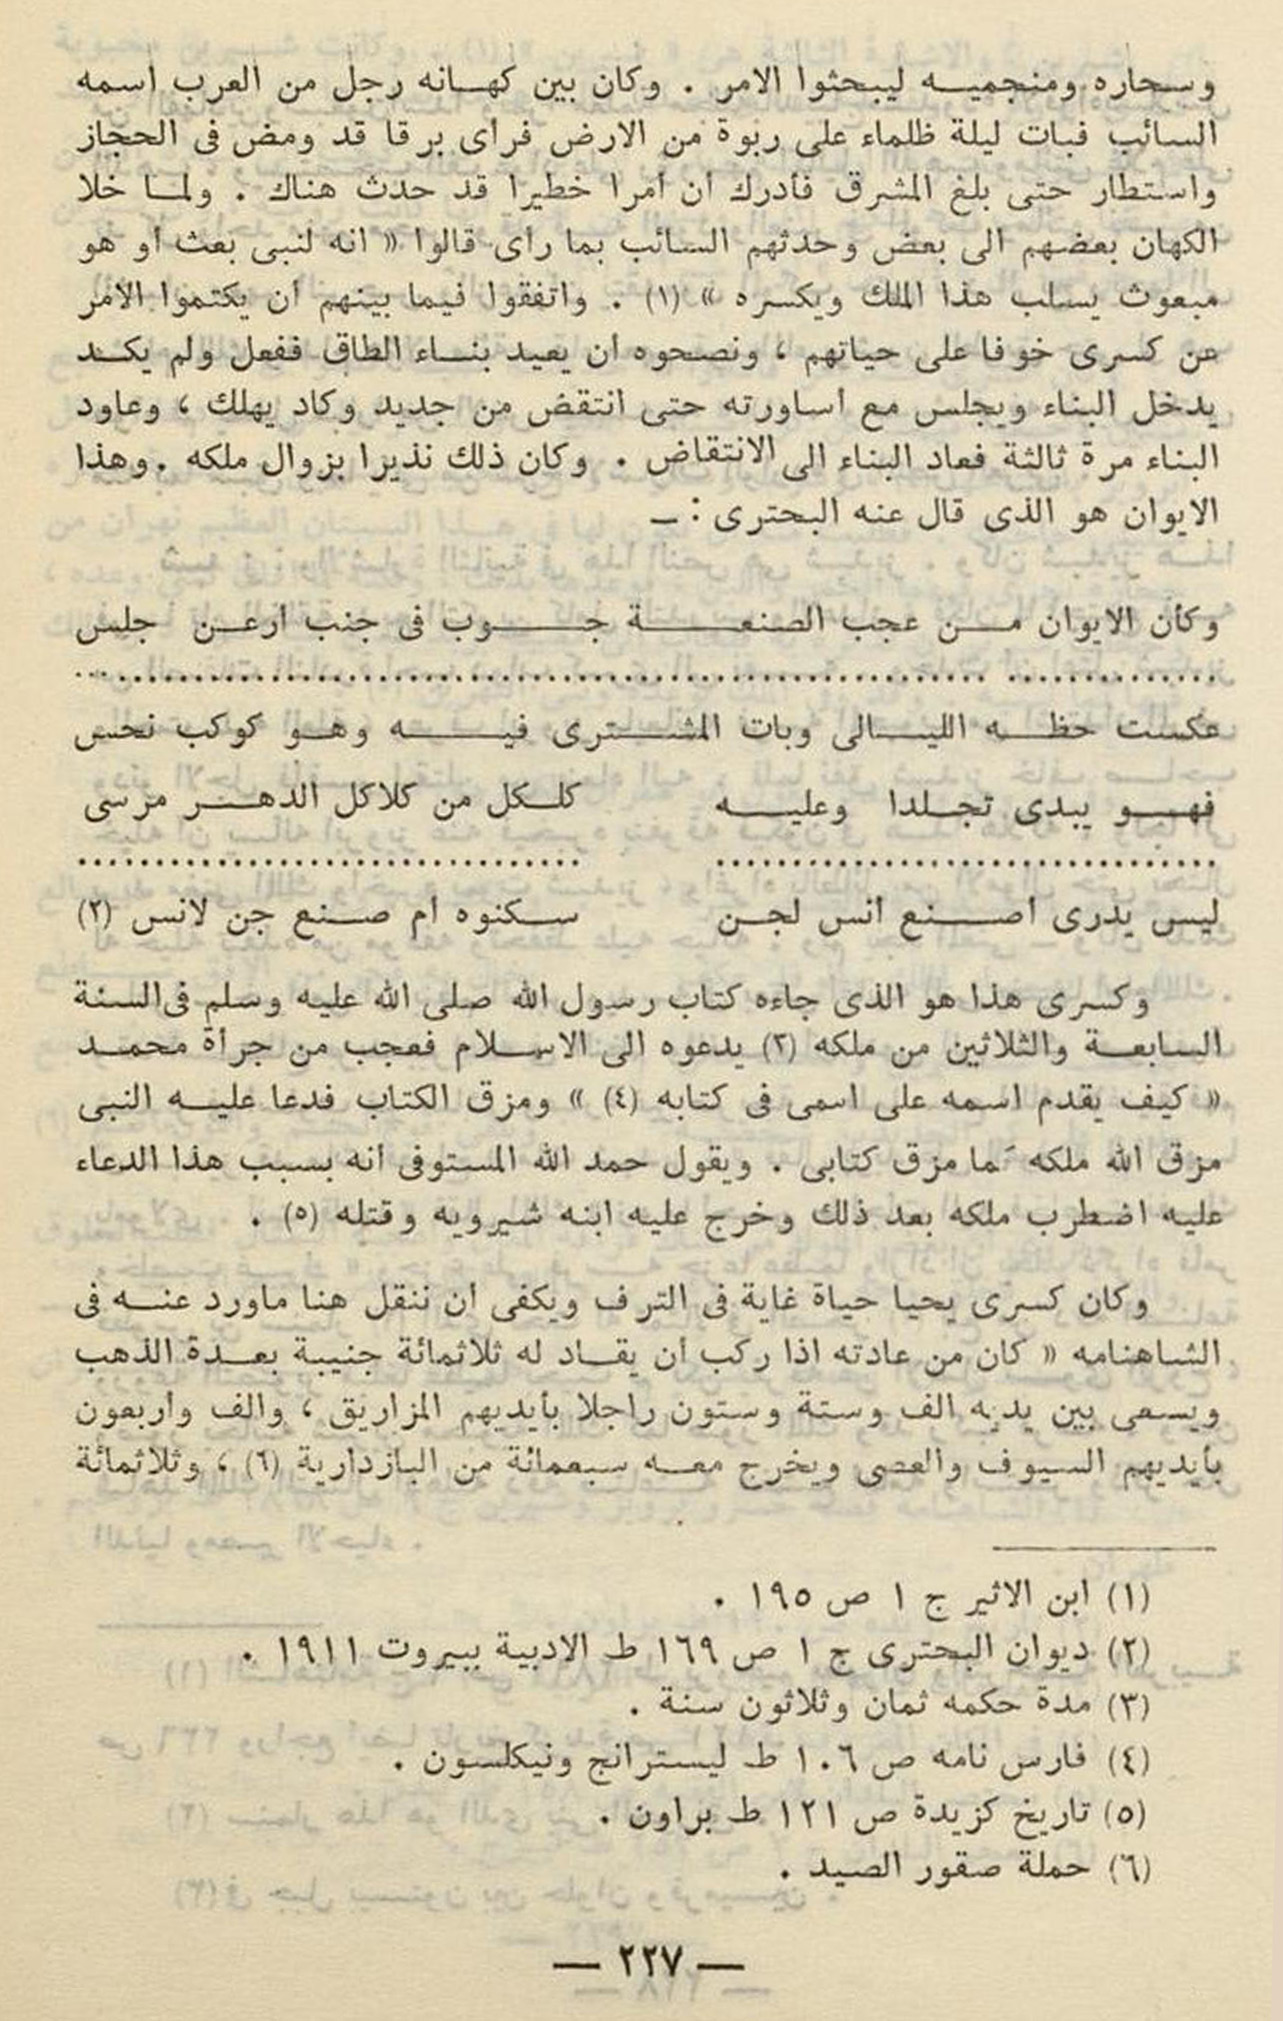 وسحاره ومنجميه ليبحثوا الامر . وكان بين كهانه رجل من العرب اسمه
السائب فبات ليلة ظلماء على ربوة من الارض فرأى برقا قد ومض فى الحجاز
واستطار حتى بلغ المشرق فأدرك أن أمرا خطيرا قد حدث هناك . ولما خلا
الكهان بعضهم الى بعض وحدثهم السائب بما رأى قالوا « انه لنبى بعث أو هو
مبعوث يسلب هذا الملك ويكسره » (١) . واتفقوا فيما بينهم أن يكتموا الأمر
عن كسرى خوفا على حياتهم ، ونصحوه أن يعيد بناء الطاق ففعل ولم يكد
يدخل البناء ويجلس مع أساورته حتى انتقض من جديد وكاد يهلك ، وعاود
البناء مرة ثالثة فعاد البناء الى الانتقاض . وكان ذلك نذيرا بزوال ملكه . وهذا
الايوان هو الذى قال عنه البحترى : ـ
وكأن الايوان من عجب الصنعة جوب فى جنب أرعن جلس
................................................................
عكست حظه الليالى وبات المشترى فيه وهو كوكب نحس
فهو يبدى تجلدا وعليه كلكل من كلاكل الدهر مرسى
................................ ................................
ليس يدرى أصنع أنس لجن سكنوه أم صنع جن لانس (٢)
وكسرى هذا هو الذى جاءه كتاب رسول الله صلى الله عليه وسلم فى السنة
السابعة والثلاثين من ملكه (٣) يدعوه الى الاسلام فعجب من جرأة محمد
« كيف يقدم اسمه على اسمى فى كتابه (٤) » ومزق الكتاب فدعا عليه النبى
مزق الله ملكه كما مزق كتابى . ويقول حمد الله المستوفى أنه بسبب هذا الدعاء
عليه اضطرب ملكه بعد ذلك وخرج عليه ابنه شيرويه وقتله (٥) .
وكان كسرى يحيا حياة غاية فى الترف ويكفى أن ننقل هنا ماورد عنه فى
الشاهنامه « كان من عادته اذا ركب أن يقاد له ثلاثمائة جنيبة بعدة الذهب
ويسعى بين يديه ألف وستة وستون راجلا بأيديهم المزاريق ، وألف وأربعون
بأيديهم السيوف والعصى ويخرج معه سبعمائة من البازدارية (٦) ، وثلاثمائة
(١) ابن الاثير ج ١ ص ١٩٥ .
(٢) ديوان البحترى ج ١ ص ١٦٩ ط الادبية ببيروت ١٩١١ .
(٣) مدة حكمه ثمان وثلاثون سنة .
(٤) فارس نامه ص ١٠٦ ط ليسترانج ونيكلسون .
(٥) تاريخ كزيدة ص ١٢١ ط براون .
(٦) حملة صقور الصيد .
— ٢٢٧ —